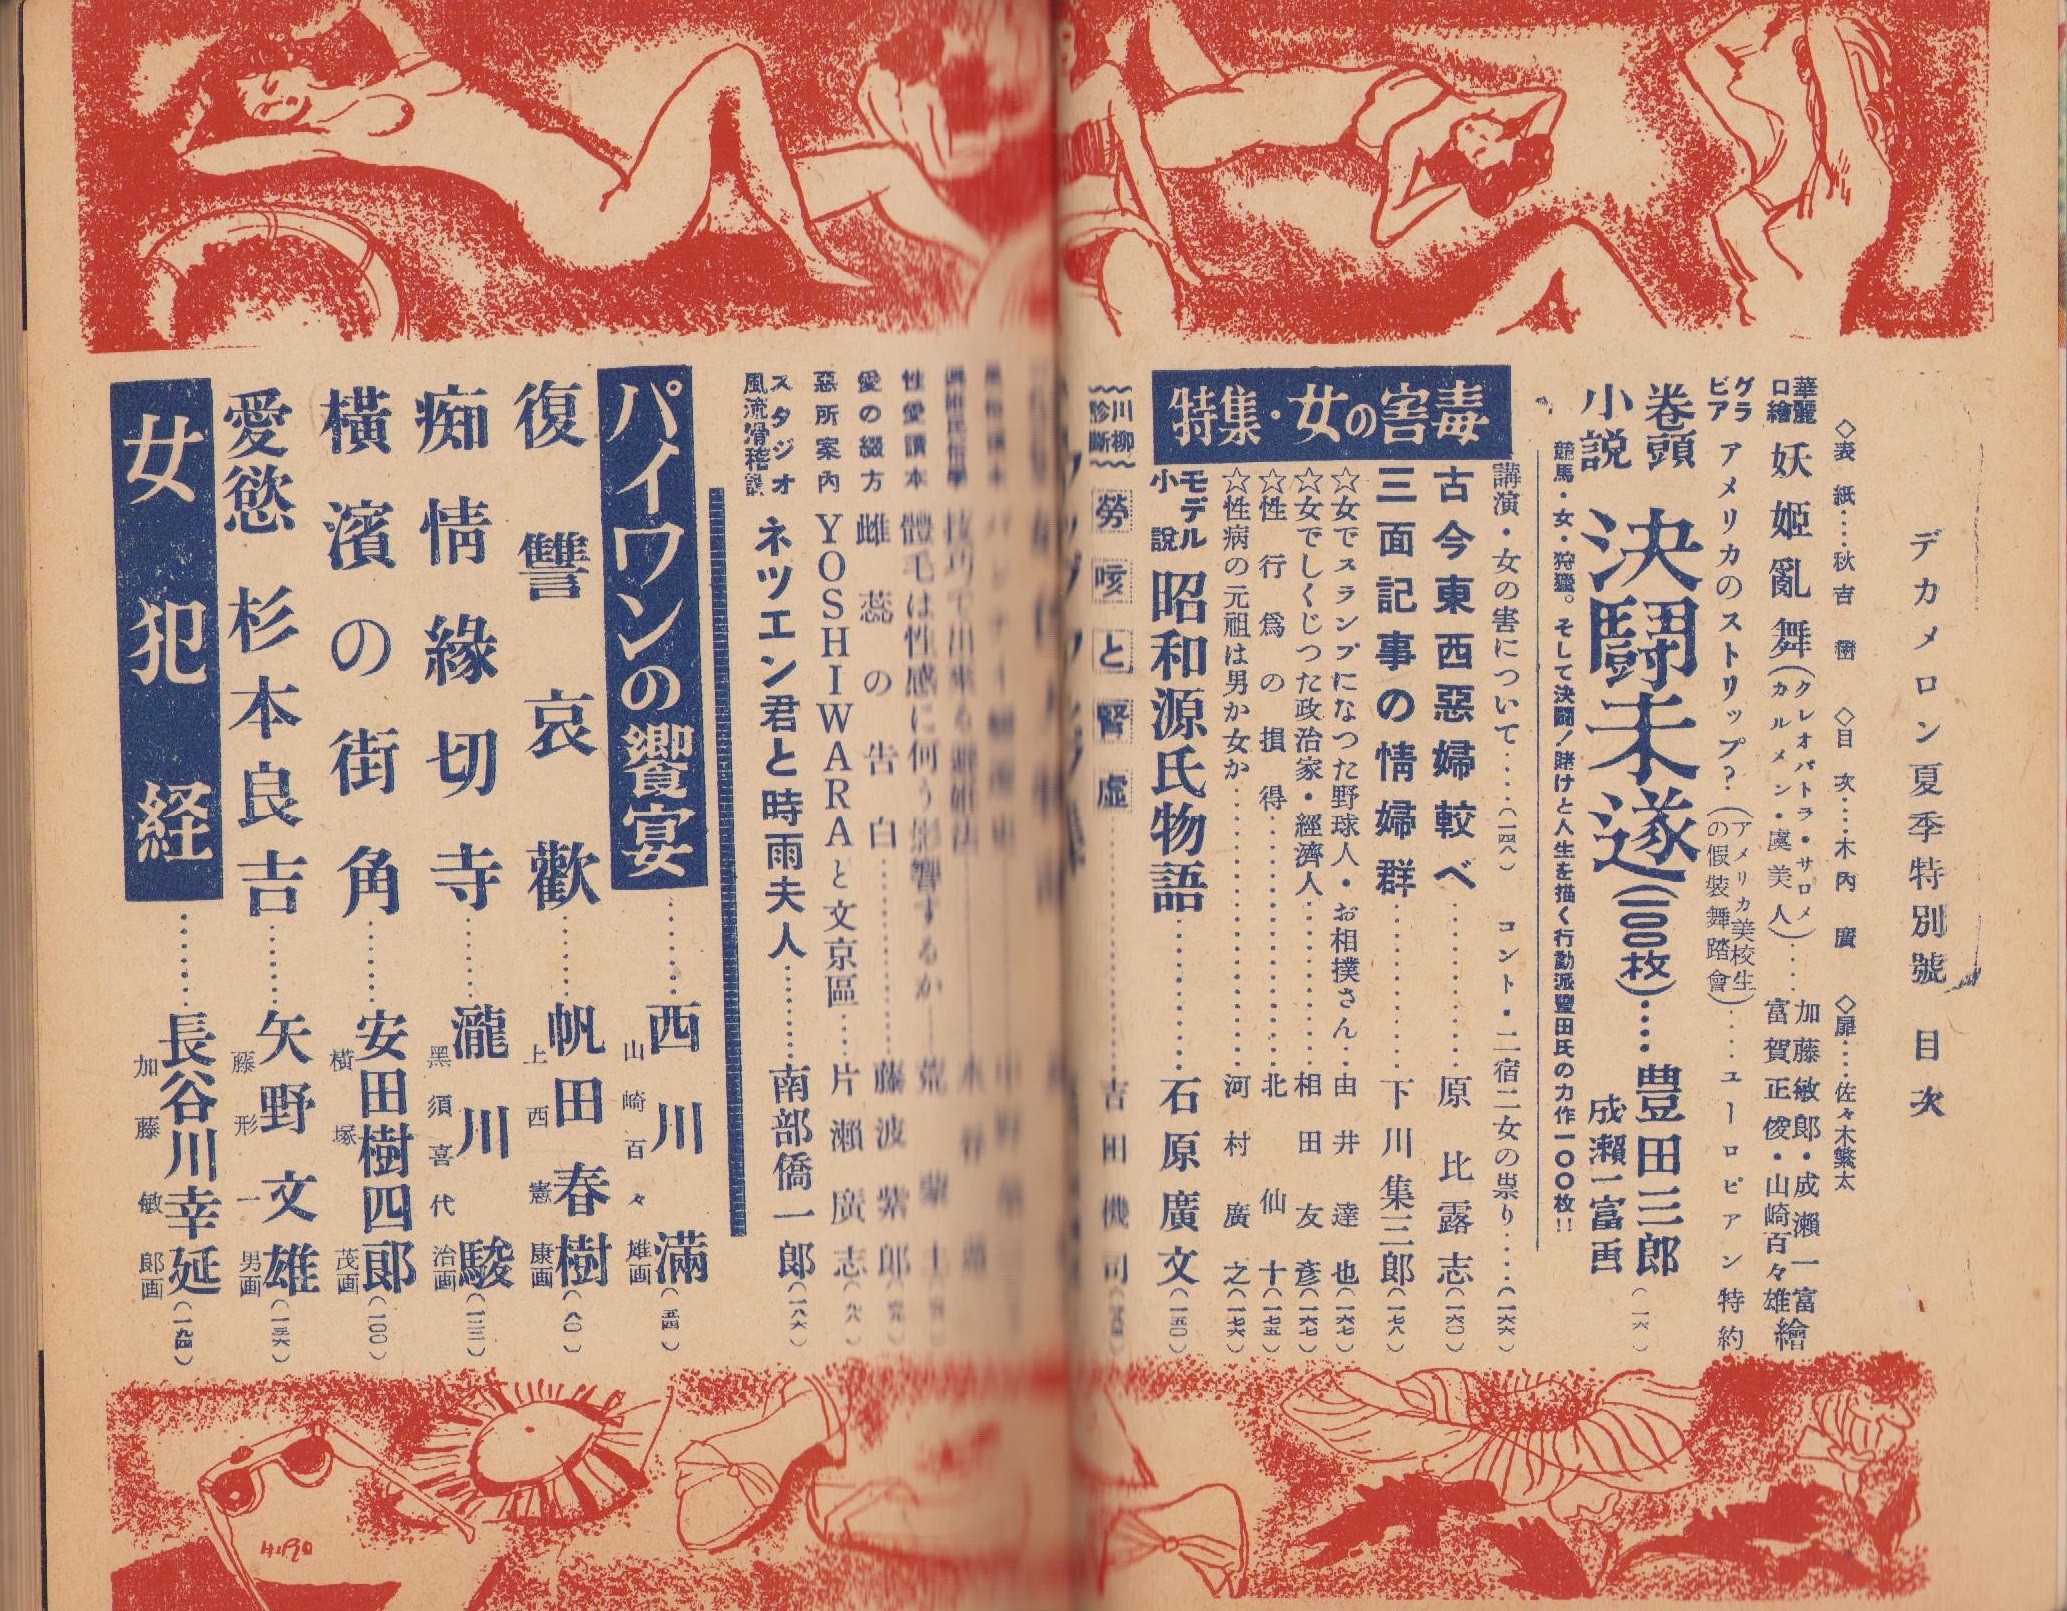 デカメロン夏季特別號 目次
◇表紙……秋吉 ◇目次……木内廣 ◇扉……佐々木繁太
華麗口繪 妖姬亂舞(クレオパトラ・サロメ/カルメン・虞美人)……加藤敏郎・成瀬一富 富賀正俊・山崎百々雄繪
グラビア アメリカのストリップ?(アメリカ美校生の假裝舞踏會)……ユーロピアン特約
巻頭小説 決鬪未遂(一〇〇枚)……豊田三郎(一六)
成瀬一富画
競馬・女・狩獵。そして決鬪!賭けと人生を描く行動派豐田氏の力作一〇〇枚!!
特集・女の害毒
講演・女の害について……(一四八) コント・二宿二女の祟り……(一六六)
古今東西惡婦較べ……原比露志(一六〇)
三面記事の情婦群……下川集三郎(一七八)
☆女でスランプになつた野球人・お相撲さん……由井達也(一六七)
☆女でしくじつた政治家・經濟人……相田友彦(一六七)
☆性行爲の損得……北仙十(一七五)
☆性病の元祖は男か女か……河村廣之(一七六)
モデル小說 昭和源氏物語……石原廣文(一五〇)
川柳診斷 勞咳と腎虚……吉田機司
性愛讀本 體毛は性感に何う影響するか
愛の綴方 雌蕊の告白……藤波紫郎
惡所案內 YOSHIWARAと文京區……片瀨廣志
スタジオ風流滑稽談 ネツエン君と時雨夫人……南部僑一郎(一八六)
パイワンの饗宴……西川滿(五四)
山崎百々雄画
復讐哀歡……帆田春樹(八〇)
上西憲康画
痴情緣切寺……瀧川駿(一二二)
黑須喜代治画
橫濱の街角……安田樹四郎(一〇〇)
橫塚茂画
愛慾杉本良吉……矢野文雄(一三六)
藤形一男画
女犯経……長谷川幸延(一九四)
加藤敏郎画
HIRO